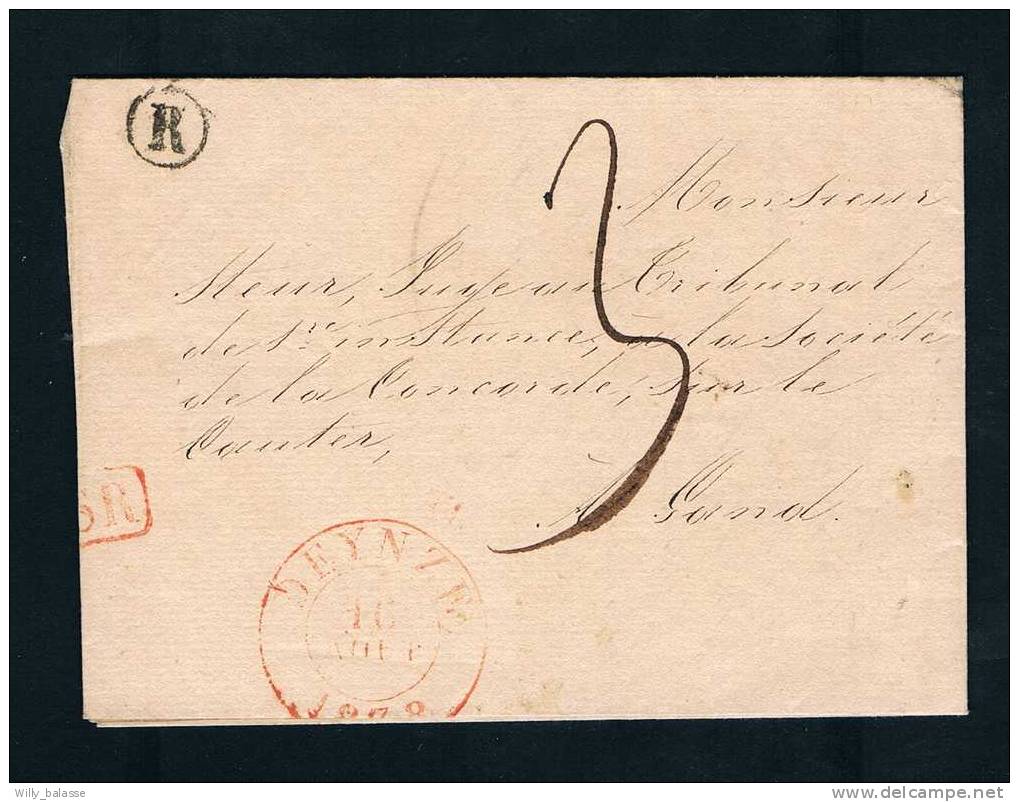 R
3
Monsieur
Steur, Juge au Tribunal
de 1re instance, à la Société
de la Concorde, sur le
Cauter,
A Gand.
SR
DEYNZE
16
AOUT
1838
Willy_balasse